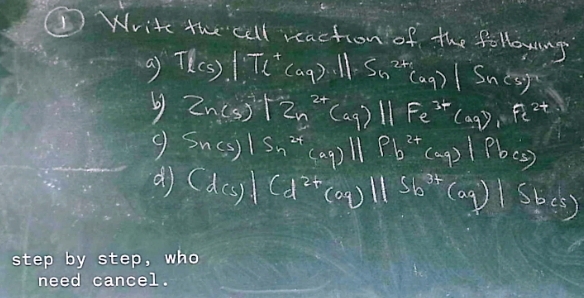 ① Write the cell reaction of the following:
a) Tl(s) | Tl⁺(aq) || Sn²⁺(aq) | Sn(s)
b) Zn(s) | Zn²⁺(aq) || Fe³⁺(aq), Fe²⁺
c) Sn(s) | Sn²⁺(aq) || Pb²⁺(aq) | Pb(s)
d) Cd(s) | Cd²⁺(aq) || Sb³⁺(aq) | Sb(s)
step by step, who
need cancel.